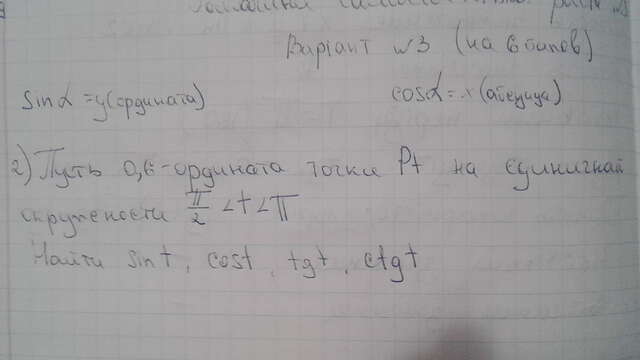 Варіант №3 (на 6 балов)
sinα = y(ордината) cosα = x (абсцисса)
2) Пусть 0,6-ордината точки Pt на единичной
окружности π/2 < t < π
Найти sin t, cos t, tg t, ctg t